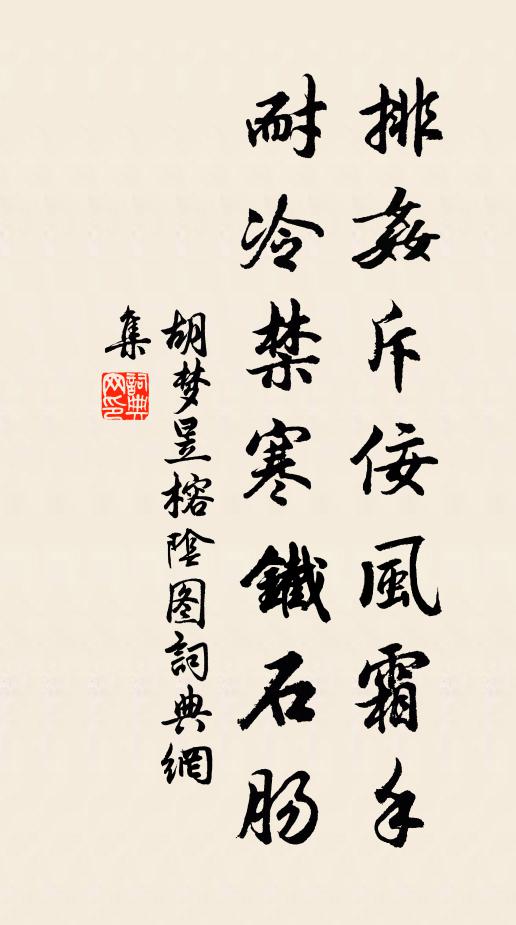 排姦斥佞風霜手
耐冷禁寒鐵石肠
胡梦昱榕陰图詞典網
集
詞典网印